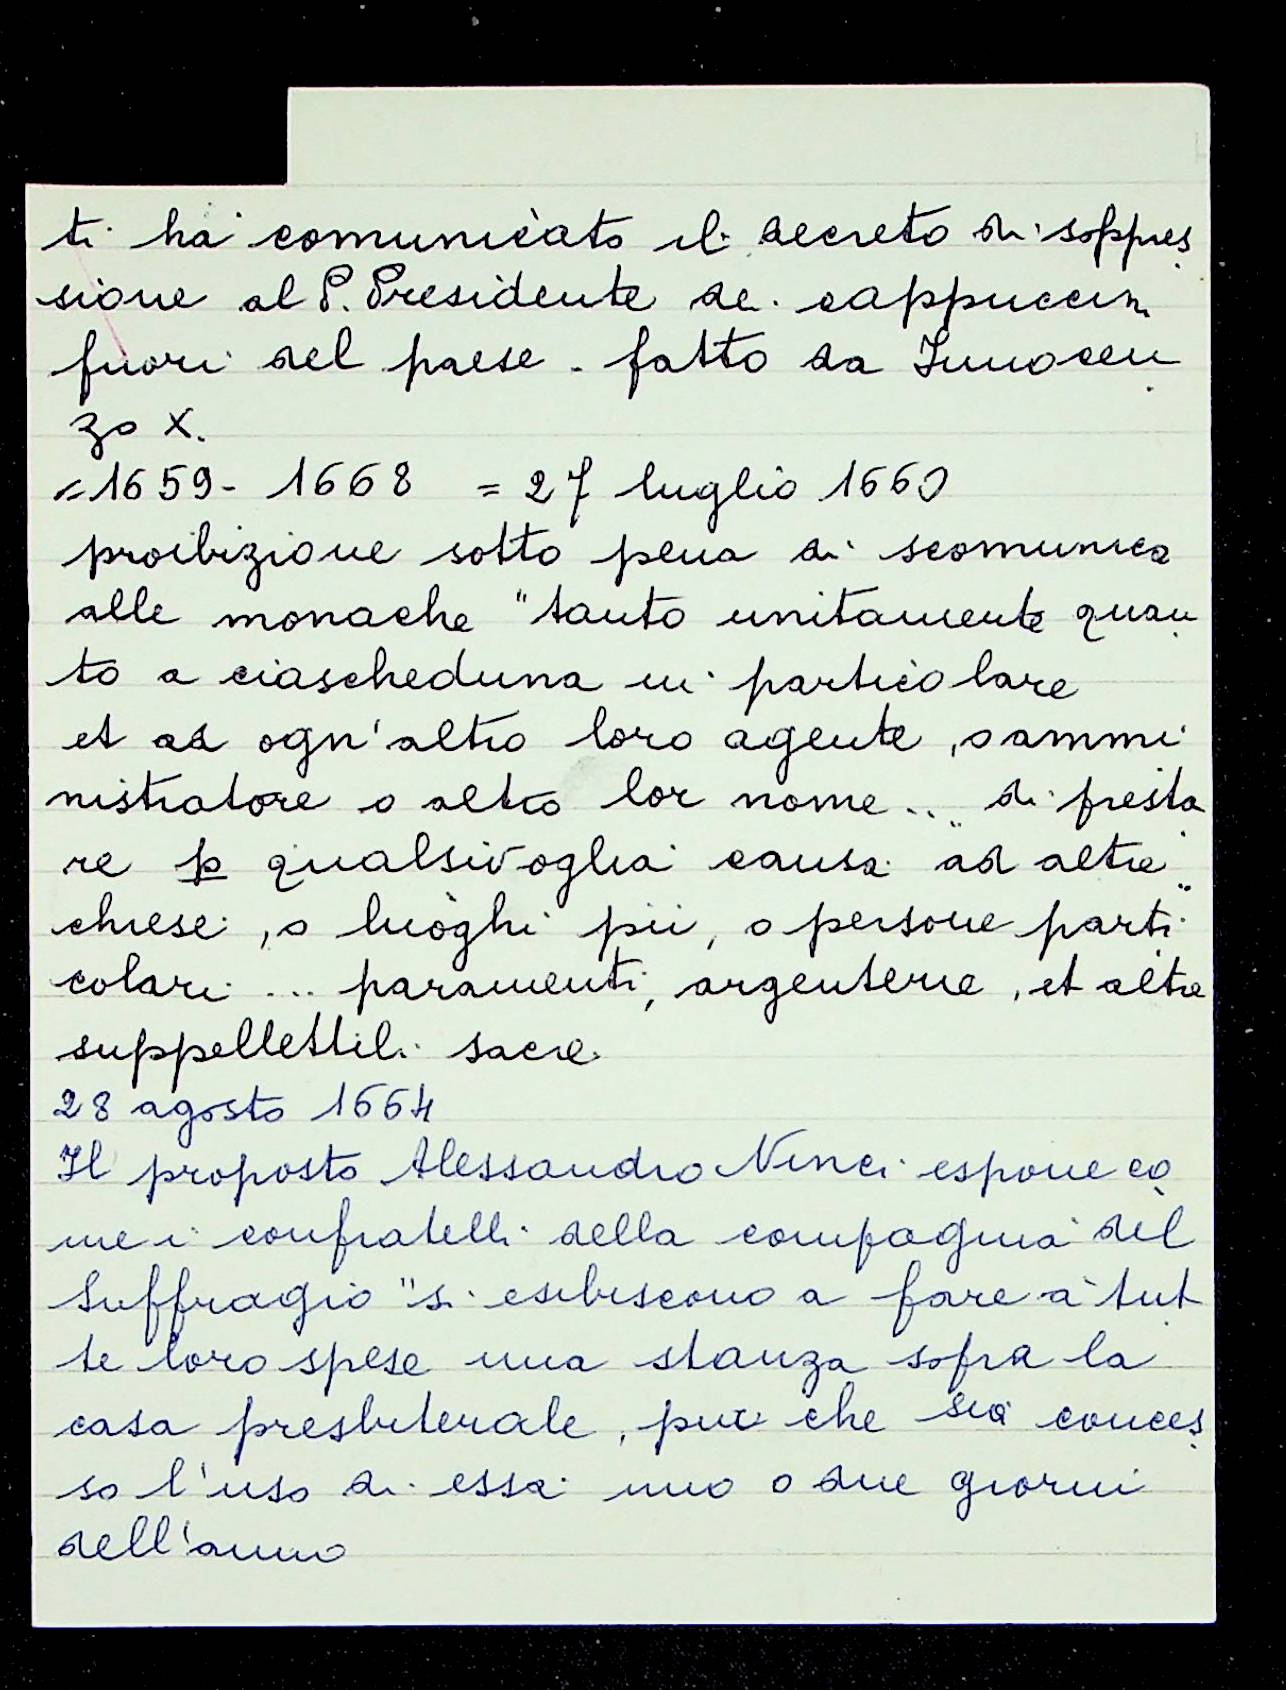 ti ha comunicato il decreto di soppres
sione al P. Presidente dei cappuccini
fuori del paese - fatto da Innocen
zo X.
= 1659 - 1668 = 27 luglio 1660
proibizione sotto pena di scomunica
alle monache "tanto unitamente quan
to a ciascheduna in particolare
et ad ogn'altro loro agente, o ammi
nistratore o altro lor nome... di presta
re p qualsivoglia causa ad altre
chiese, o luoghi pii, o persone parti
colari ... paramenti, argenterie, et altre
suppellettili sacre
28 agosto 1664
Il proposto Alessandro Ninci espone co
me i confratelli della compagnia del
Suffragio "si esibiscono a fare a tut
te loro spese una stanza sopra la
casa presbiterale, pur che sia conces
so l'uso di essa uno o due giorni
dell'anno